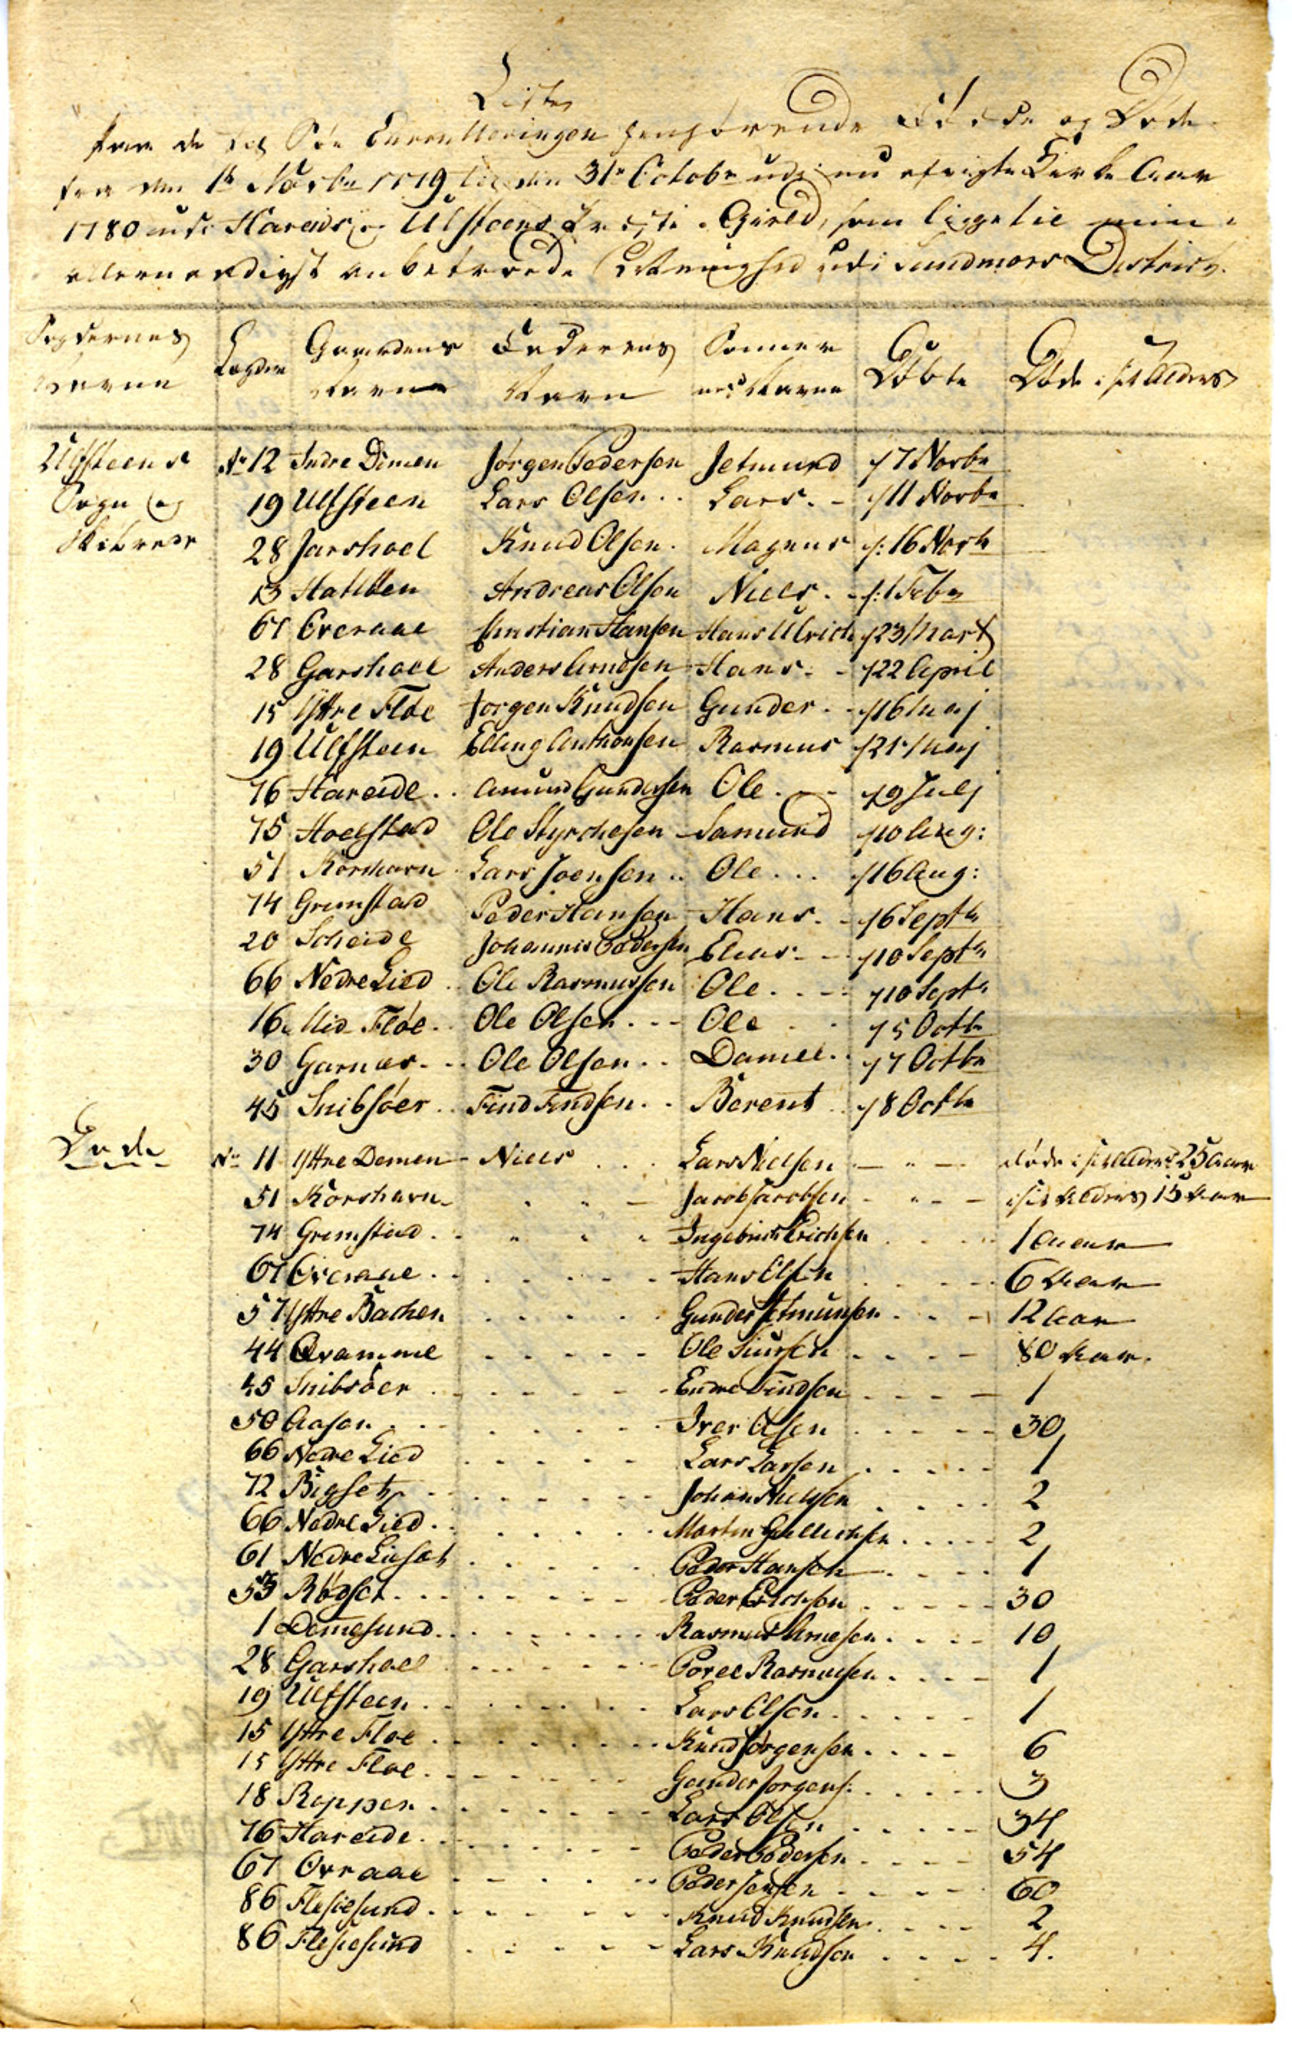 Liste
fra de til Søe Enrolleringen henhørende Fødde og Døde
fra den 1te Novbr 1779 til den 31te Octobr udi nu afvigte Kirke Aar
1780 udi Hareids og Ulfsteens Præste Gield, som ligge til min
allernaadigst anbetroede udi Sundmørs District.
Sognernes Navne
Lægder
Gaardens Navne
Faderens Navn
Sønner nes Navne
Døbte
Døde i sit Alders
Ulfsteens Sogn og Skibrede
No 12 Indre Dimen Jørgen Pedersen Jetmund 7 Novbr
19 Ulfsteen Lars Olsen Lars 11 Novbr
28 Jarshoel Knud Olsen Magnus 16 Novbr
13 Hatløen Andreas Olsen Niels 1 Febr
67 Overaae Christian Hansen Hans Ulrich 23 Mart
28 Garshoel Anders Arndsen Hans 22 April
15 Yttre Fløe Jørgen Knudsen Gunder 16 Maj
19 Ulfsteen Elling Anthonsen Rasmus 21 Maj
76 Hareide Amund Gundersen Ole 9 Julj
75 Hoelstad Ole Styrchesen Samund 10 Aug:
51 Korshavn Lars Joensen Ole 16 Aug:
74 Grimstad Peder Hansen Hans 6 Septbr
20 Scheide Johannis Pedersen Elias 10 Septbr
66 Nedre Lied Ole Rasmussen Ole 10 Septbr
16 Mid Fløe Ole Olsen Ole 5 Octbr
30 Garnæs Ole Olsen Daniel 7 Octbr
45 Snibsøer Find Findsen Berent 8 Octbr
Døde No 11 Yttre Demen Niels Lars Nielsen døde i sit Alders 25 Aar
51 Korshavn Jacob Jacobsen i sit Alders 15 Aar
74 Grimstad Ingebrict Erichsen 1 Aar
67 Overaae Hans Olsen 6 Aar
57 Yttre Bachen Gunder Jetmunsen 12 Aar
44 Qvamme Ole Siursen 80 Aar
45 Snibsøer Endre Findsen 1
50 Aasen Iver Olsen 30
66 Nedre Lied Lars Larsen 1
72 Bigset Johan Nielsen 2
66 Nedre Lied Morten Gullichsen 2
61 Nedre Liaset Peder Hansen 1
53 Rødset Peder Erichsen 30
1 Demesund Rasmus Arnesen 10
28 Garshoel Povel Rasmusen 1
19 Ulfsteen Lars Olsen 1
15 Yttre Floe Knud Jørgensen 6
15 Yttre Floe Gunder Jørgens: 3
18 Roppen Lars Olsen 34
76 Hareide Peder Pedersen 54
67 Overaae Peder Jensen 60
86 Flesiesund Knud Knudsen 2
86 Flesiesund Lars Knudsen 4.